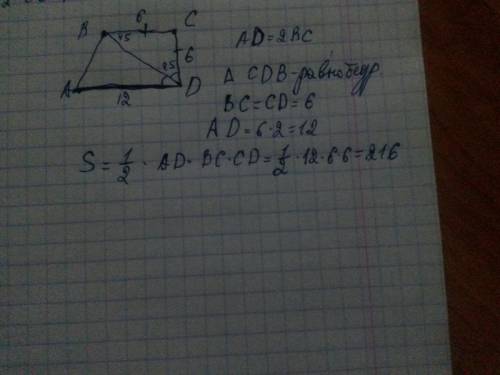 6
B 45 C
6
45
A D
12
AD=2BC
Δ CDB-равнобедр
BC=CD=6
AD=6·2=12
S=1/2·AD·BC·CD=1/2·12·6·6=216